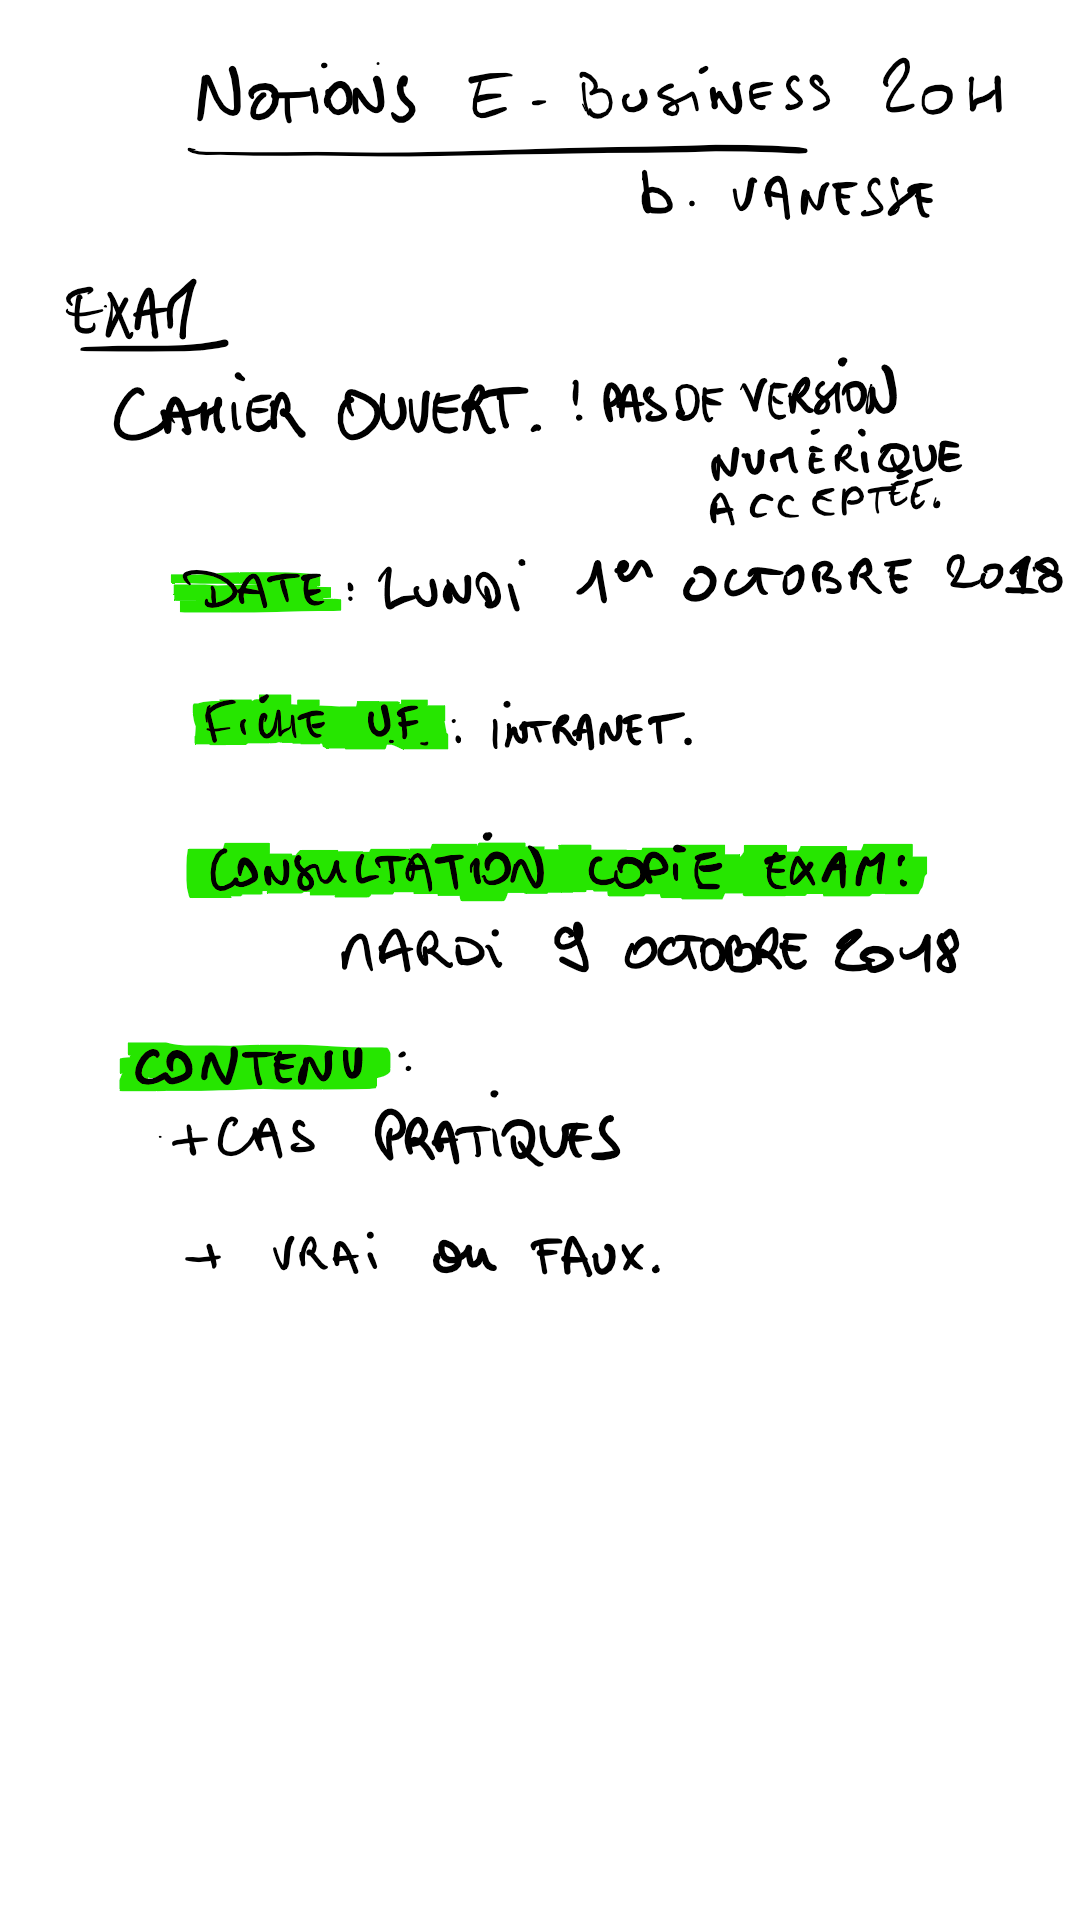 NOTIONS E-BUSINESS 20H
b. VANESSE
EXAM
CAHIER OUVERT. ! PAS DE VERSION
NUMÉRIQUE
ACCEPTÉE.
DATE : LUNDI 1er OCTOBRE 2018
FICHE U.F. : INTRANET.
CONSULTATION COPIE EXAM :
MARDI 9 OCTOBRE 2018
CONTENU :
+ CAS PRATIQUES
+ VRAI ou FAUX.